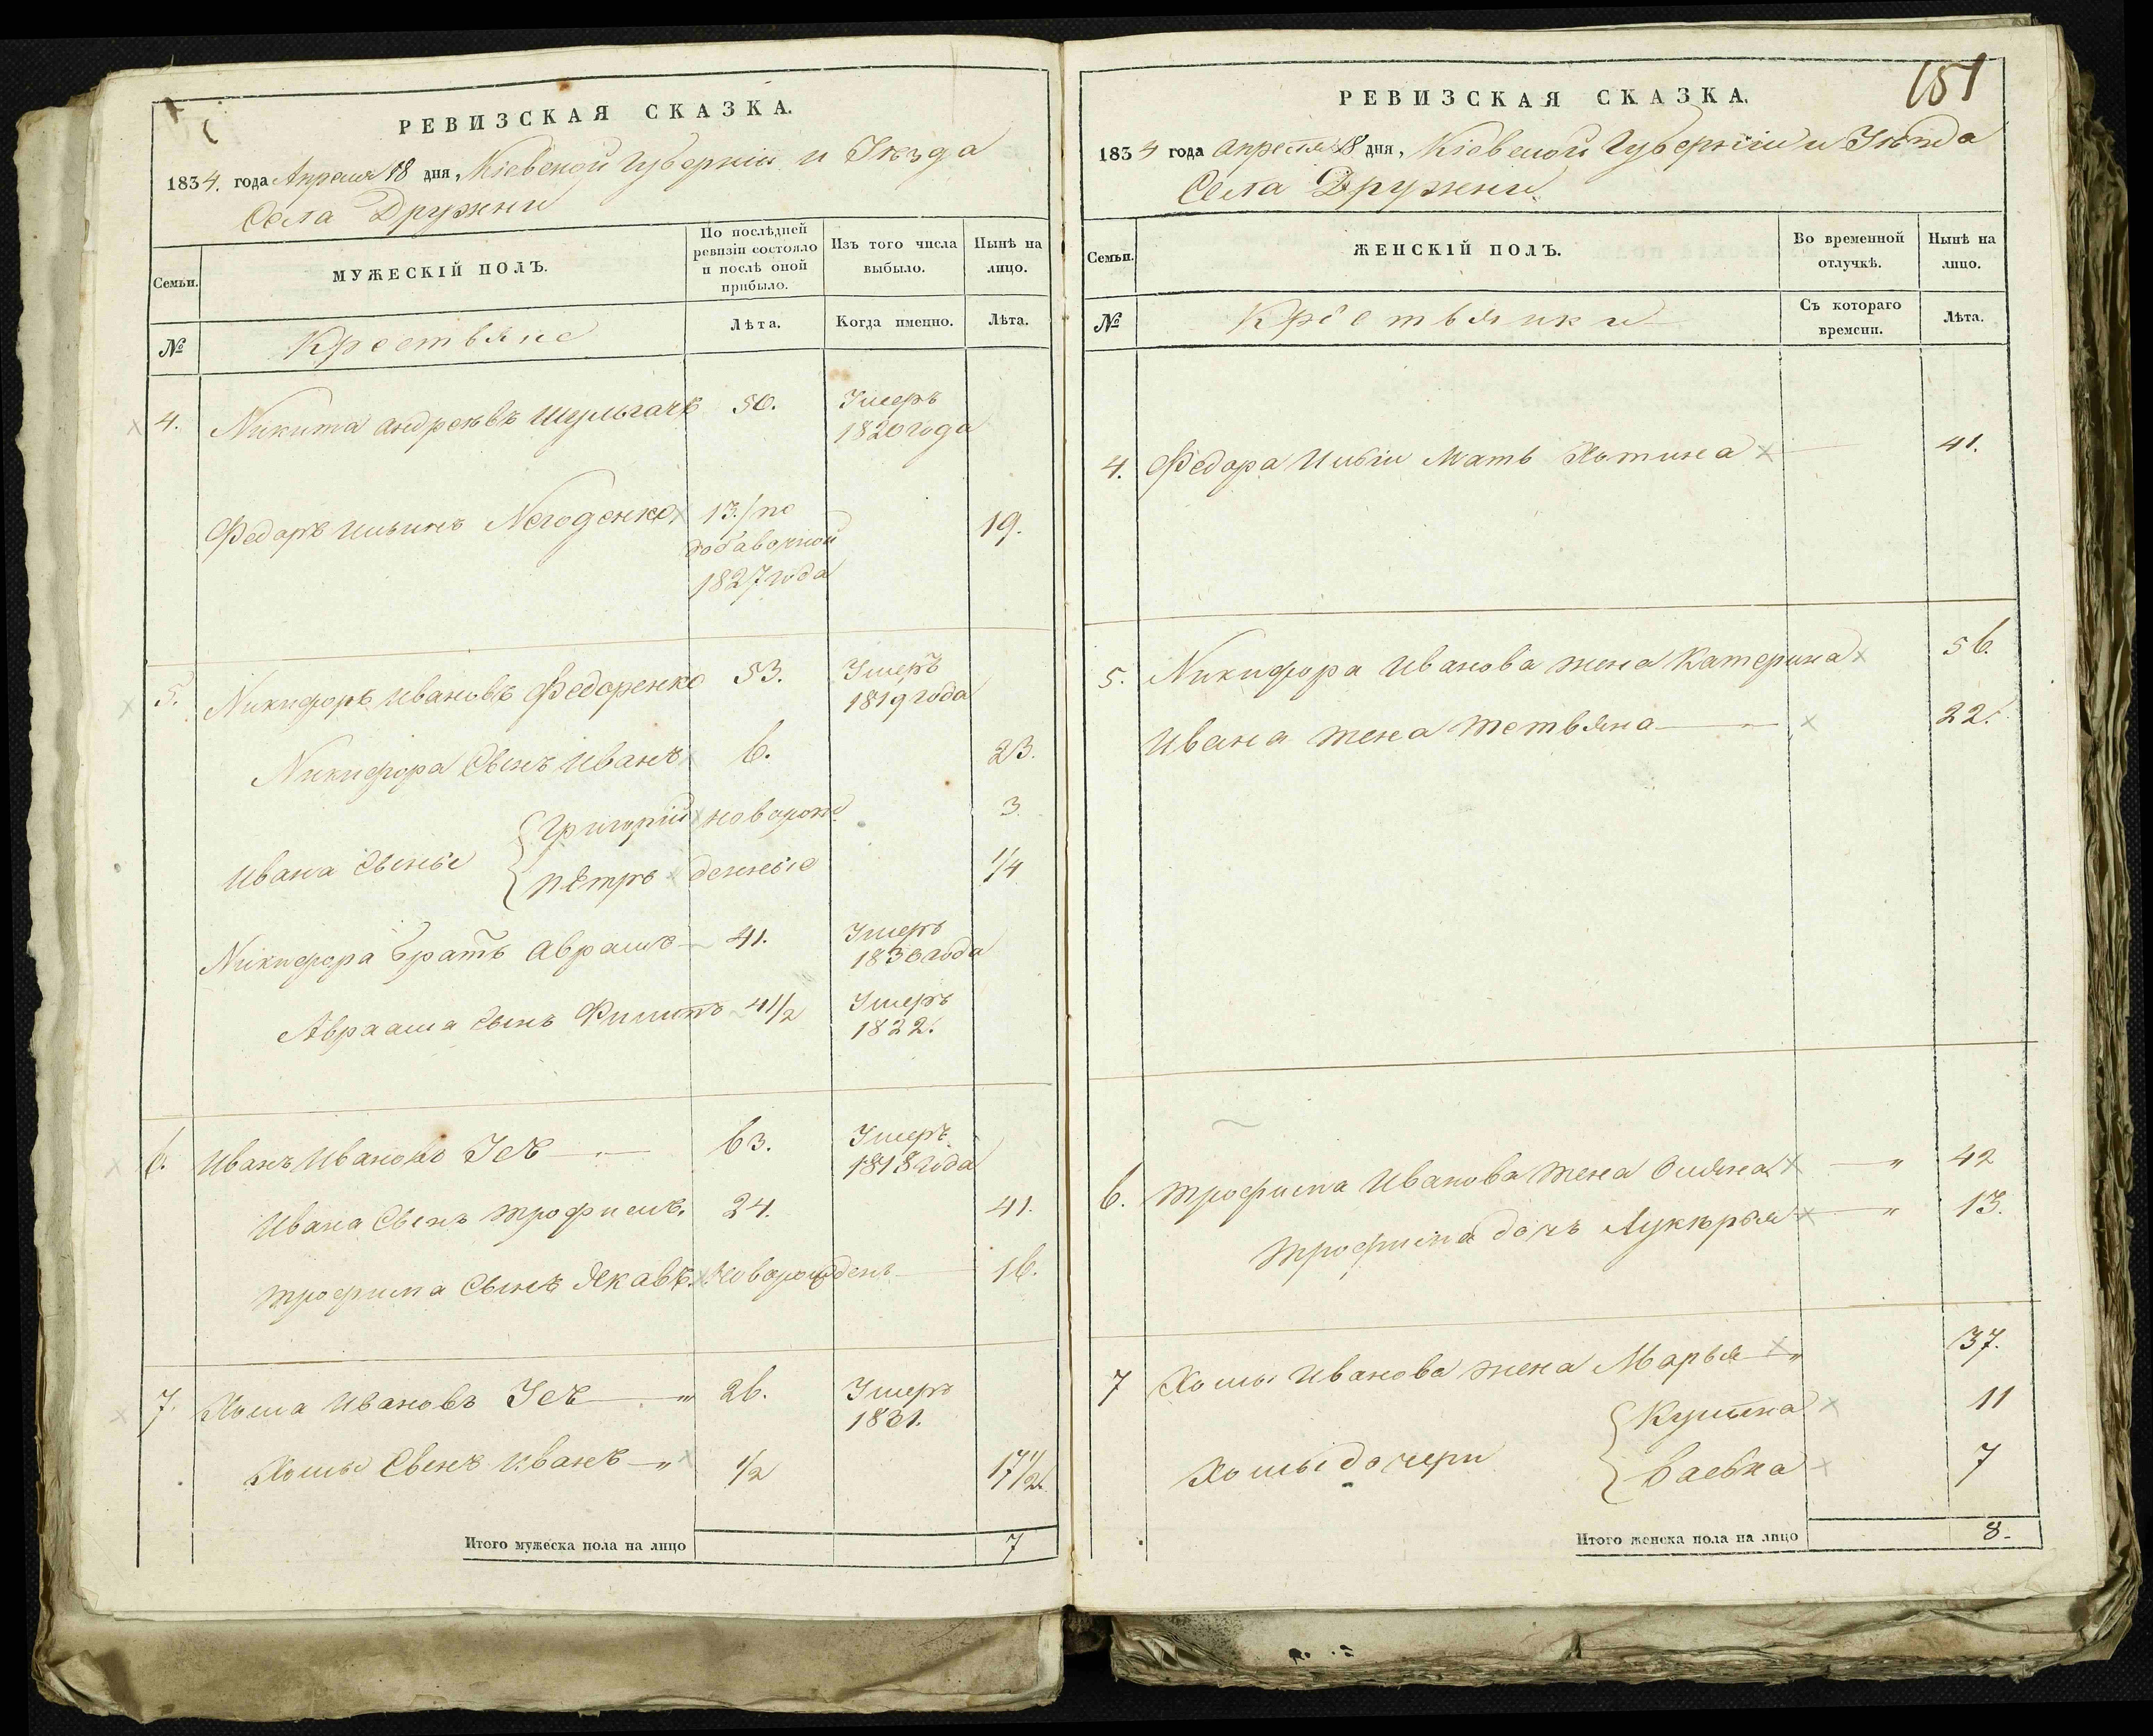 РЕВИЗСКАЯ СКАЗКА.
1834. года Апреля 18 дня, Кіевской Губерніи и Уѣзда
Села Дружни
Семьи.
МУЖЕСКІЙ ПОЛЪ.
По послѣдней ревизіи состояло и послѣ оной прибыло.
Изъ того числа выбыло.
Нынѣ на лицо.
№
Крестьяне
Лѣта.
Когда именно.
Лѣта.
4. Никита Андреѣвъ Шульгачъ 50. Умеръ
1820 года
Федоръ Ильинъ 13. / по 19.
добавочной
1827 года
5. Никифоръ Ивановъ Федоренко 53. Умеръ
1819 года
Никифора Сынъ Иванъ 6. 23.
Григорій новорож 3.
Ивана Сыны
Петръ денные 1/4
Никифора братъ Аврамъ 41. Умеръ
1830 года
Авраама Сынъ Филипъ 4 1/2 Умеръ
1822.
6. Иванъ Ивановъ Усъ 63. Умеръ
1818 года
Ивана Сынъ Трофимъ. 24. 41.
Трофима Сынъ Якавъ. новорожденъ 16.
7. Хома Ивановъ Усъ " 26. Умеръ
1831.
Хомы Сынъ Иванъ " 1/2 17 1/2.
Итого мужеска пола на лицо 7
151
РЕВИЗСКАЯ СКАЗКА.
1834 года Апреля 18 дня, Кіевской Губерніи и Уѣзда
Села Дружни.
Семьи.
ЖЕНСКІЙ ПОЛЪ.
Во временной отлучкѣ.
Нынѣ на лицо.
№
Крестьянки
Съ котораго времени.
Лѣта.
4. Федора Мать 41.
5. Никифора Иванова жена Катерина 56.
Ивана жена Тетьяна 22.
6. Трофима Иванова жена " 42
Трофима дочь Лукѣрья " 13.
7 Хомы Иванова жена Марья " 37.
11
Хомы дочери
Васька 7
Итого женска пола на лицо 8.